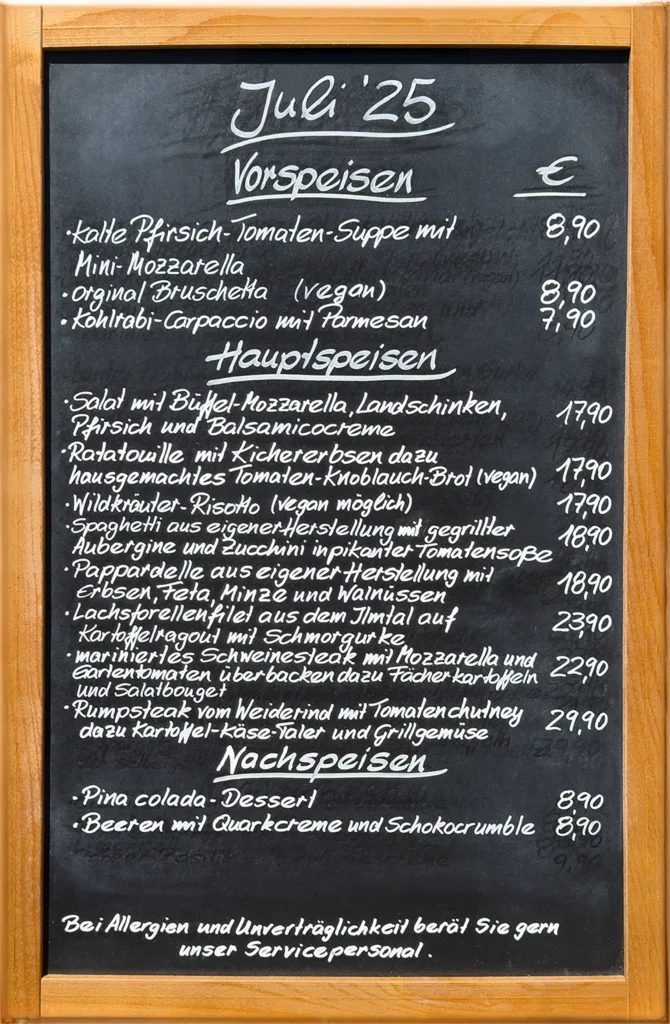 Juli '25
Vorspeisen €
• Kalte Pfirsich-Tomaten-Suppe mit 8,90
Mini-Mozzarella
• Orginal Bruschetta (vegan) 8,90
• Kohlrabi-Carpaccio mit Parmesan 7,90
Hauptspeisen
• Salat mit Büffel-Mozzarella, Landschinken,
Pfirsich und Balsamicocreme 17,90
• Ratatouille mit Kichererbsen dazu
hausgemachtes Tomaten-Knoblauch-Brot (vegan) 17,90
• Wildkräuter-Risotto (vegan möglich) 17,90
• Spaghetti aus eigener Herstellung mit gegrillter 18,90
Aubergine und Zucchini in pikanter Tomatensoße
• Pappardelle aus eigener Herstellung mit
Erbsen, Feta, Minze und Walnüssen 18,90
• Lachsforellenfilet aus dem Ilmtal auf 23,90
Kartoffelragout mit Schmorgurke
• mariniertes Schweinesteak mit Mozzarella und
Gartentomaten überbacken dazu Fächerkartoffeln 22,90
und Salatbouget
• Rumpsteak vom Weiderind mit Tomatenchutney 29,90
dazu Kartoffel-Käse-Taler und Grillgemüse
Nachspeisen
• Pina colada-Dessert 8,90
• Beeren mit Quarkcreme und Schokocrumble 8,90
Bei Allergien und Unverträglichkeit berät Sie gern
unser Servicepersonal.